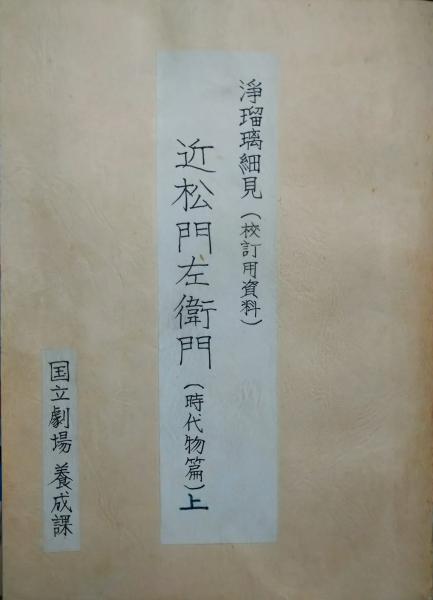 浄瑠璃細見(校訂用資料)
近松門左衛門(時代物篇)上
国立劇場 養成課